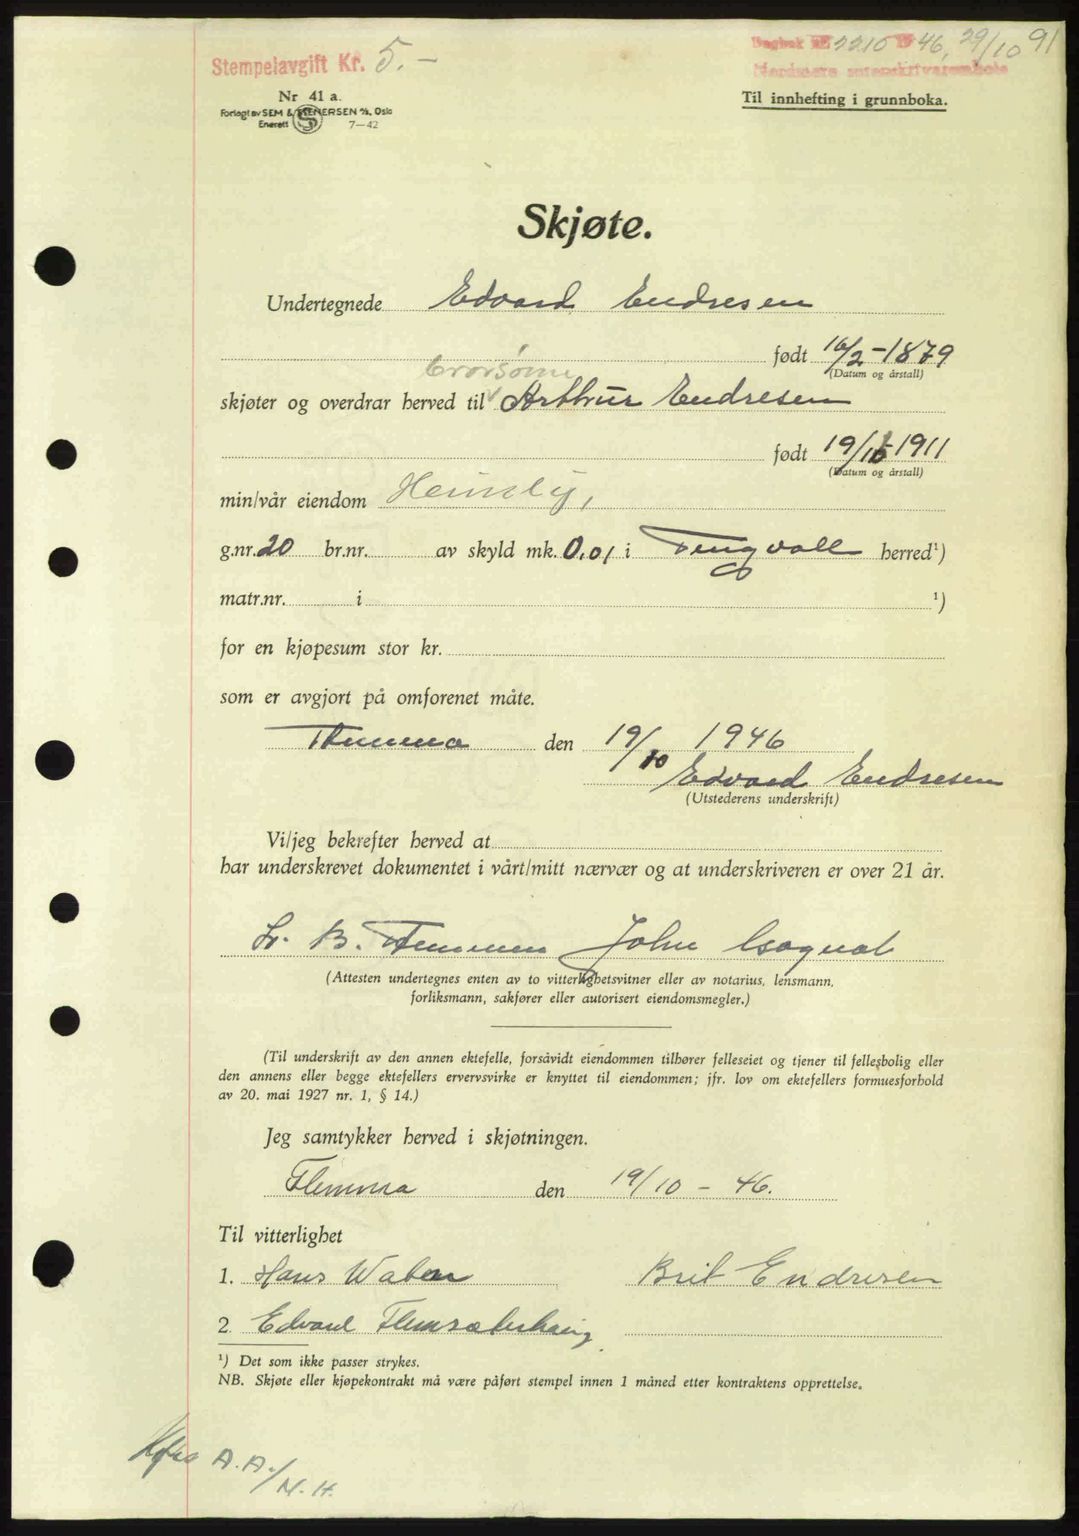 Stempelavgift Kr. 5.-
Dagbok nr. 2210 1946, 29/10 91
Nordmøre sorenskriverembete
Nr 41 a.
Forlagt av SEM & STENERSEN A/S, Oslo
Enerett 7-42
Til innhefting i grunnboka.
Skjøte.
Undertegnede Edvard Endresen
født 16/2-1879
(Datum og årstall)
brorsønn
skjøter og overdrar herved til Arthur Endresen
født 19/11-1911
(Datum og årstall)
min/vår eiendom Heimly,
g.nr. 20 br.nr. av skyld mk. 0,01 i Tingvoll herred¹)
matr.nr. i ¹)
for en kjøpesum stor kr.
som er avgjort på omforenet måte.
Flemma den 19/10 1946
Edvard Endresen
(Utstederens underskrift)
Vi/jeg bekrefter herved at
har underskrevet dokumentet i vårt/mitt nærvær og at underskriveren er over 21 år.
B. Flemmen John
(Attesten undertegnes enten av to vitterlighetsvitner eller av notarius, lensmann,
forliksmann, sakfører eller autorisert eiendomsmegler.)
(Til underskrift av den annen ektefelle, forsåvidt eiendommen tilhører felleseiet og tjener til fellesbolig eller
den annens eller begge ektefellers ervervsvirke er knyttet til eiendommen; jfr. lov om ektefellers formuesforhold
av 20. mai 1927 nr. 1, § 14.)
Jeg samtykker herved i skjøtningen.
Flemma den 19/10 - 46.
Til vitterlighet
1. Hans Brit Endresen
2. Edvard Flemsæterhaug
¹) Det som ikke passer strykes.
NB. Skjøte eller kjøpekontrakt må være påført stempel innen 1 måned etter kontraktens opprettelse.
A.A./N.H.